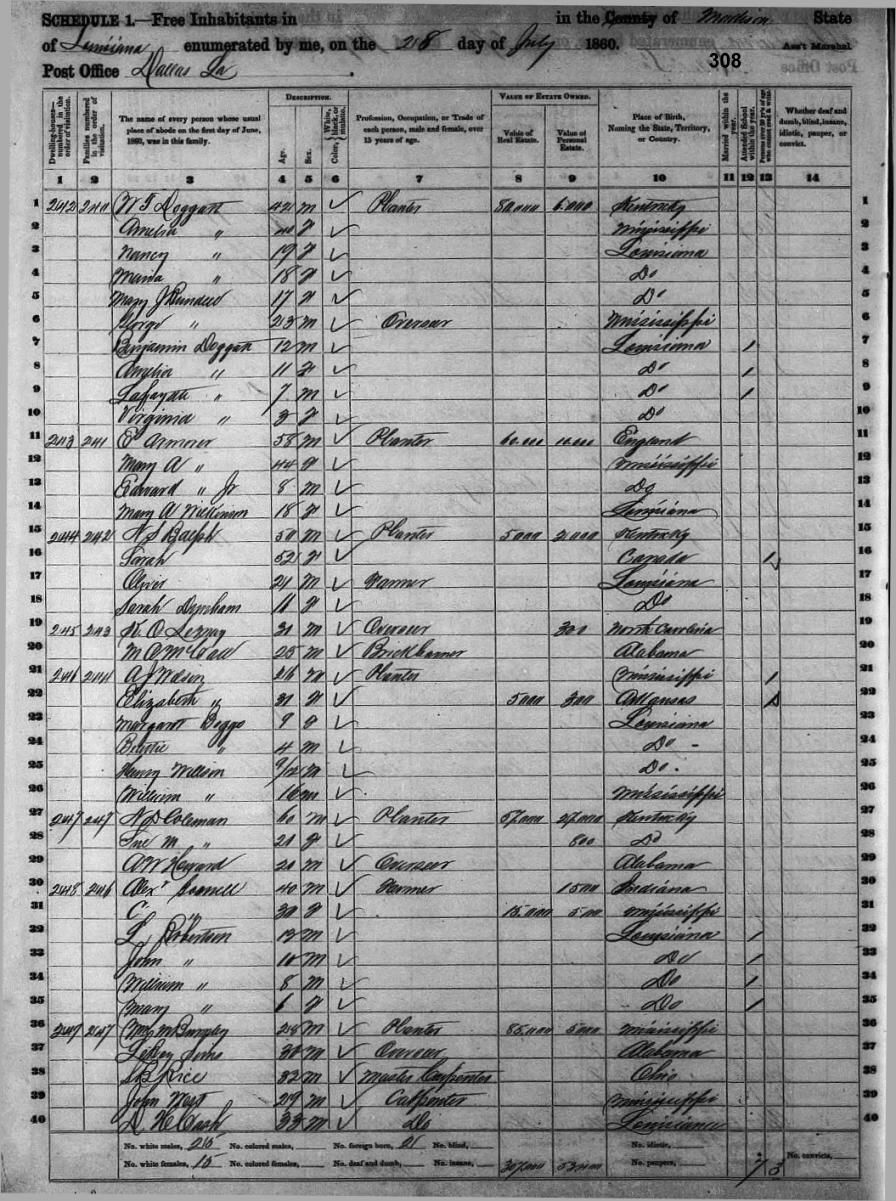 SCHEDULE 1.—Free Inhabitants in in the County of Madison State
of Louisiana enumerated by me, on the 28 day of July 1860. Ass't Marshal
Post Office Dallas La 308
DESCRIPTION. VALUE OF ESTATE OWNED.
Dwelling-houses—numbered in the order of visitation. Families numbered in the order of visitation. The name of every person whose usual place of abode on the first day of June, 1860, was in this family. Age. Sex. Color, White, black, or mulatto. Profession, Occupation, or Trade of each person, male and female, over 15 years of age. Value of Real Estate. Value of Personal Estate. Place of Birth, Naming the State, Territory, or Country. Married within the year. Attended School within the year. Persons over 20 y'rs of age who cannot read & write. Whether deaf and dumb, blind, insane, idiotic, pauper, or convict.
1 2 3 4 5 6 7 8 9 10 11 12 13 14
1 242 240 W F Doggett 42 m ✓ Planter 80,000 6,000 Kentucky 1
2 Amelia " 40 f ✓ Mississippi 2
3 Nancy " 19 f ✓ Louisiana 3
4 Maria " 18 f ✓ Do 4
5 Mary J 17 f ✓ Do 5
6 George " 23 m ✓ Overseer Mississippi 6
7 Benjamin Doggett 12 m ✓ Louisiana / 7
8 Amelia " 11 f ✓ Do / 8
9 Laffayette " 7 m ✓ Do / 9
10 Virginia " 3 f ✓ Do 10
11 243 241 E Armorer 58 m ✓ Planter 60,000 10,000 England 11
12 Mary A " 44 f ✓ Mississippi 12
13 Edward " Jr 8 m ✓ Do 13
14 Mary A Wilkinson 18 f ✓ Louisiana 14
15 244 242 N S 50 m ✓ Planter 5000 2,000 Kentucky 15
16 Sarah 52 f ✓ Canada / 16
17 Oliver 21 m ✓ Farmer Louisiana 17
18 Sarah 11 f ✓ Do 18
19 245 243 31 m ✓ Overseer 300 North Carolina 19
20 25 m ✓ Alabama 20
21 246 244 A J Wilson 26 m ✓ Planter Mississippi / 21
22 Elizabeth " 31 f ✓ 5000 300 Arkansas 22
23 Margaret Boggs 9 f ✓ Louisiana 23
24 " 4 m ✓ Do - 24
25 Henry Willson 9/12 m ✓ Do - 25
26 William " 16 m ✓ Mississippi 26
27 247 247 N D Coleman 60 m ✓ Planter 57,000 27,000 Kentucky 27
28 " 21 f ✓ 800 Do 28
29 A W 20 m ✓ Overseer Alabama 29
30 248 246 Alexr 40 m ✓ Farmer 1500 Indiana 30
31 C " 30 f ✓ 15,000 500 Mississippi 31
32 L Robertson 13 m ✓ Louisiana / 32
33 John " 10 m ✓ Do / 33
34 William " 8 m ✓ Do / 34
35 Mary " 6 f ✓ Do / 35
36 247 28 m ✓ Planter 85,000 5000 Mississippi 36
37 LeRoy Sims 30 m ✓ Overseer Alabama 37
38 Rice 32 m ✓ Master Carpenter Ohio 38
39 John West 29 m ✓ Carpenter Mississippi 39
40 D H Cash 33 m ✓ Do Louisiana 40
No. white males, 25 No. colored males, No. foreign born, No. blind, No. idiotic, No. convicts,
No. white females, 15 No. colored females, No. deaf and dumb, No. insane, No. paupers, 7 3